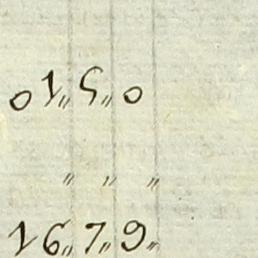 01〃 5〃 0
〃 〃 〃
16〃 7〃 9〃